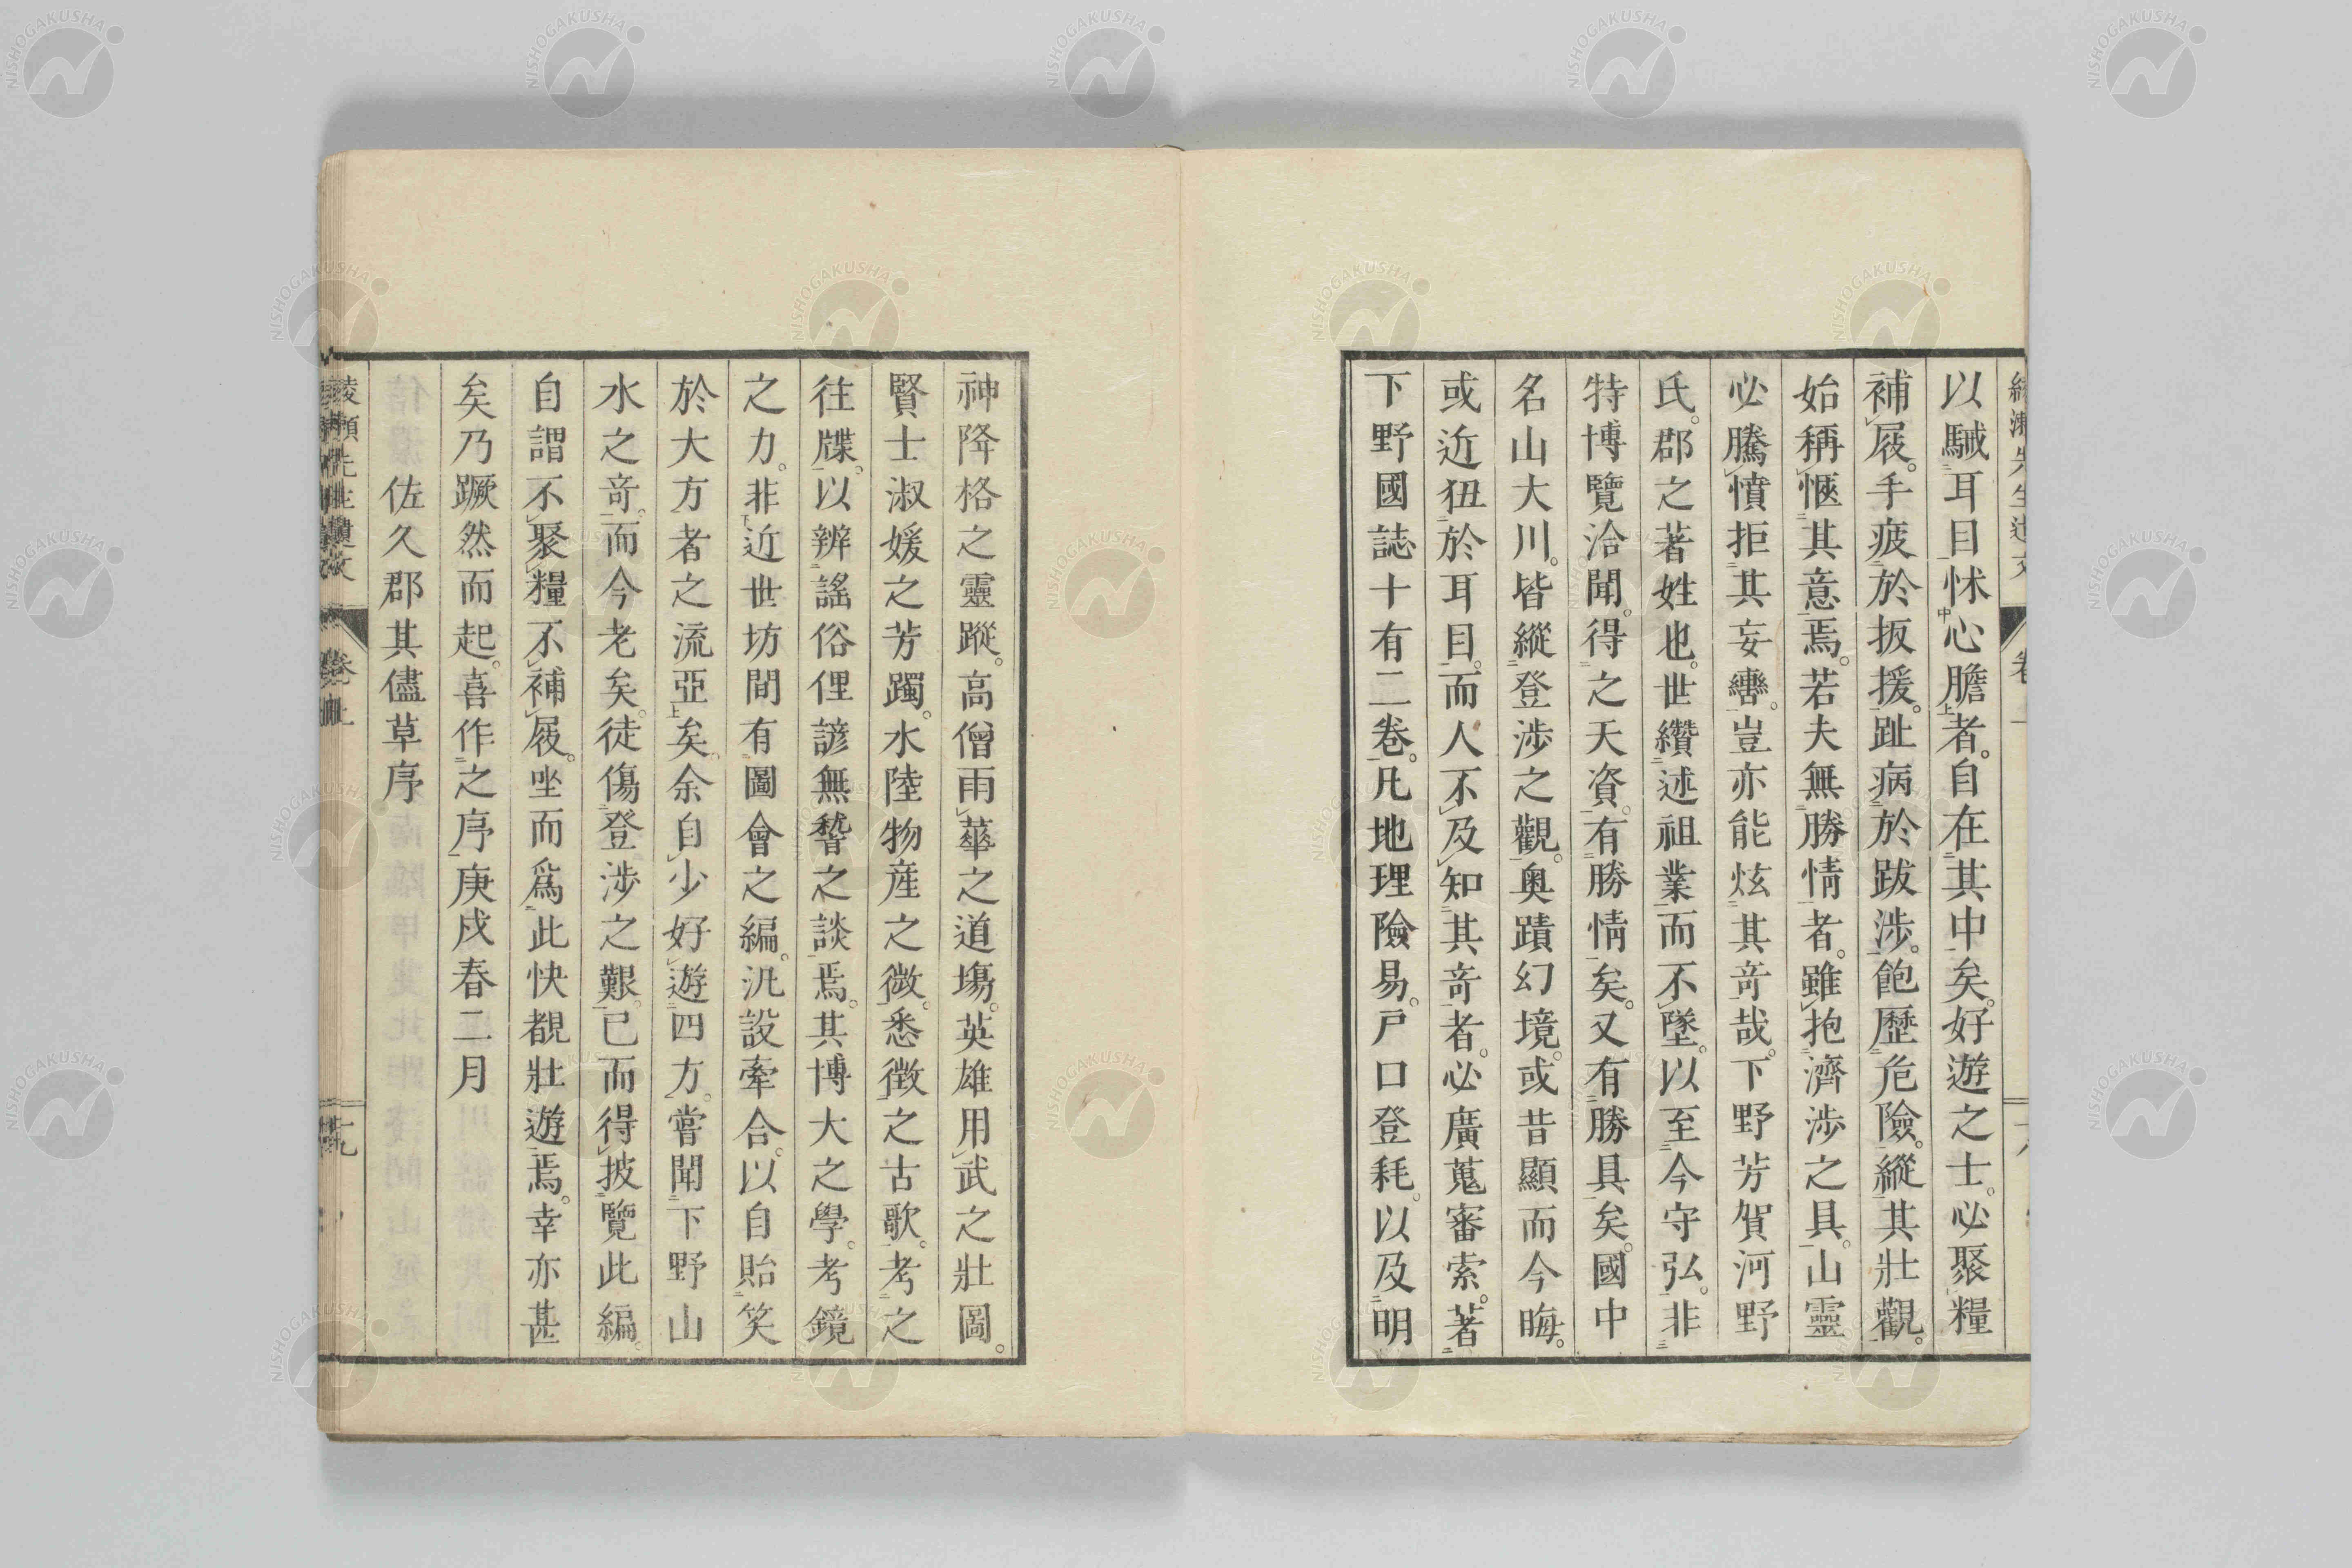 以駴耳目怵心膽者。自在其中矣。好遊之士。必聚糧
補屐。手疲於扳援。趾病於跋涉。飽歷危險。縱其壯觀。
始稱愜其意焉。若夫無勝情者。雖抱濟涉之具。山靈
必騰憤拒其妄轡。豈亦能炫其奇哉。下野芳賀河野
氏。郡之著姓也。世纘述祖業而不墜。以至今守弘。非
特博覽洽聞。得之天資。有勝情矣。又有勝具矣。國中
名山大川。皆縱登涉之觀。奧蹟幻境。或昔顯而今晦。
或近狃於耳目。而人不及知其奇者。必廣蒐審索。著
下野國誌十有二卷。凡地理險易。戶口登耗。以及明
神降格之靈蹤。高僧雨華之道場。英雄用武之壯圖。
賢士淑媛之芳躅。水陸物產之微。悉徵之古歌。考之
往牒。以辨謠俗俚諺無稽之談焉。其博大之學。考鏡
之力。非近世坊間有圖會之編。汎設牽合。以自貽笑
於大方者之流亞矣。余自少好遊四方。嘗聞下野山
水之奇。而今老矣。徒傷登涉之艱。已而得披覽此編
自謂不聚糧不補屐。坐而爲此快覩壯遊焉。幸亦甚
矣乃蹶然而起。喜作之序庚戌春二月
佐久郡其儘草序
NISHOGAKUSHA